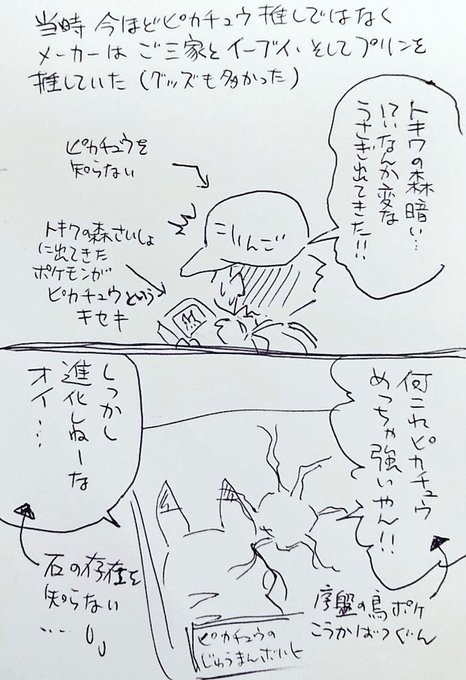 当時 今ほどピカチュウ推しではなく
メーカーは ご三家とイーブイ、そしてプリンを
推していた(グッズも多かった)
トキワの森暗い…
!?いなんか変な
うさぎ出てきた!!
ピカチュウを
知らない
こりんご
トキワの森さいしょ
に出てきた
ポケモンが
ピカチュウという
キセキ
何これピカチュウ
めっちゃ強いやん!!
序盤の鳥ポケ
こうかばつぐん
しっかし
進化しねーな
オイ…
石の存在を
知らない
……
ピカチュウの
じゅうまんボルト